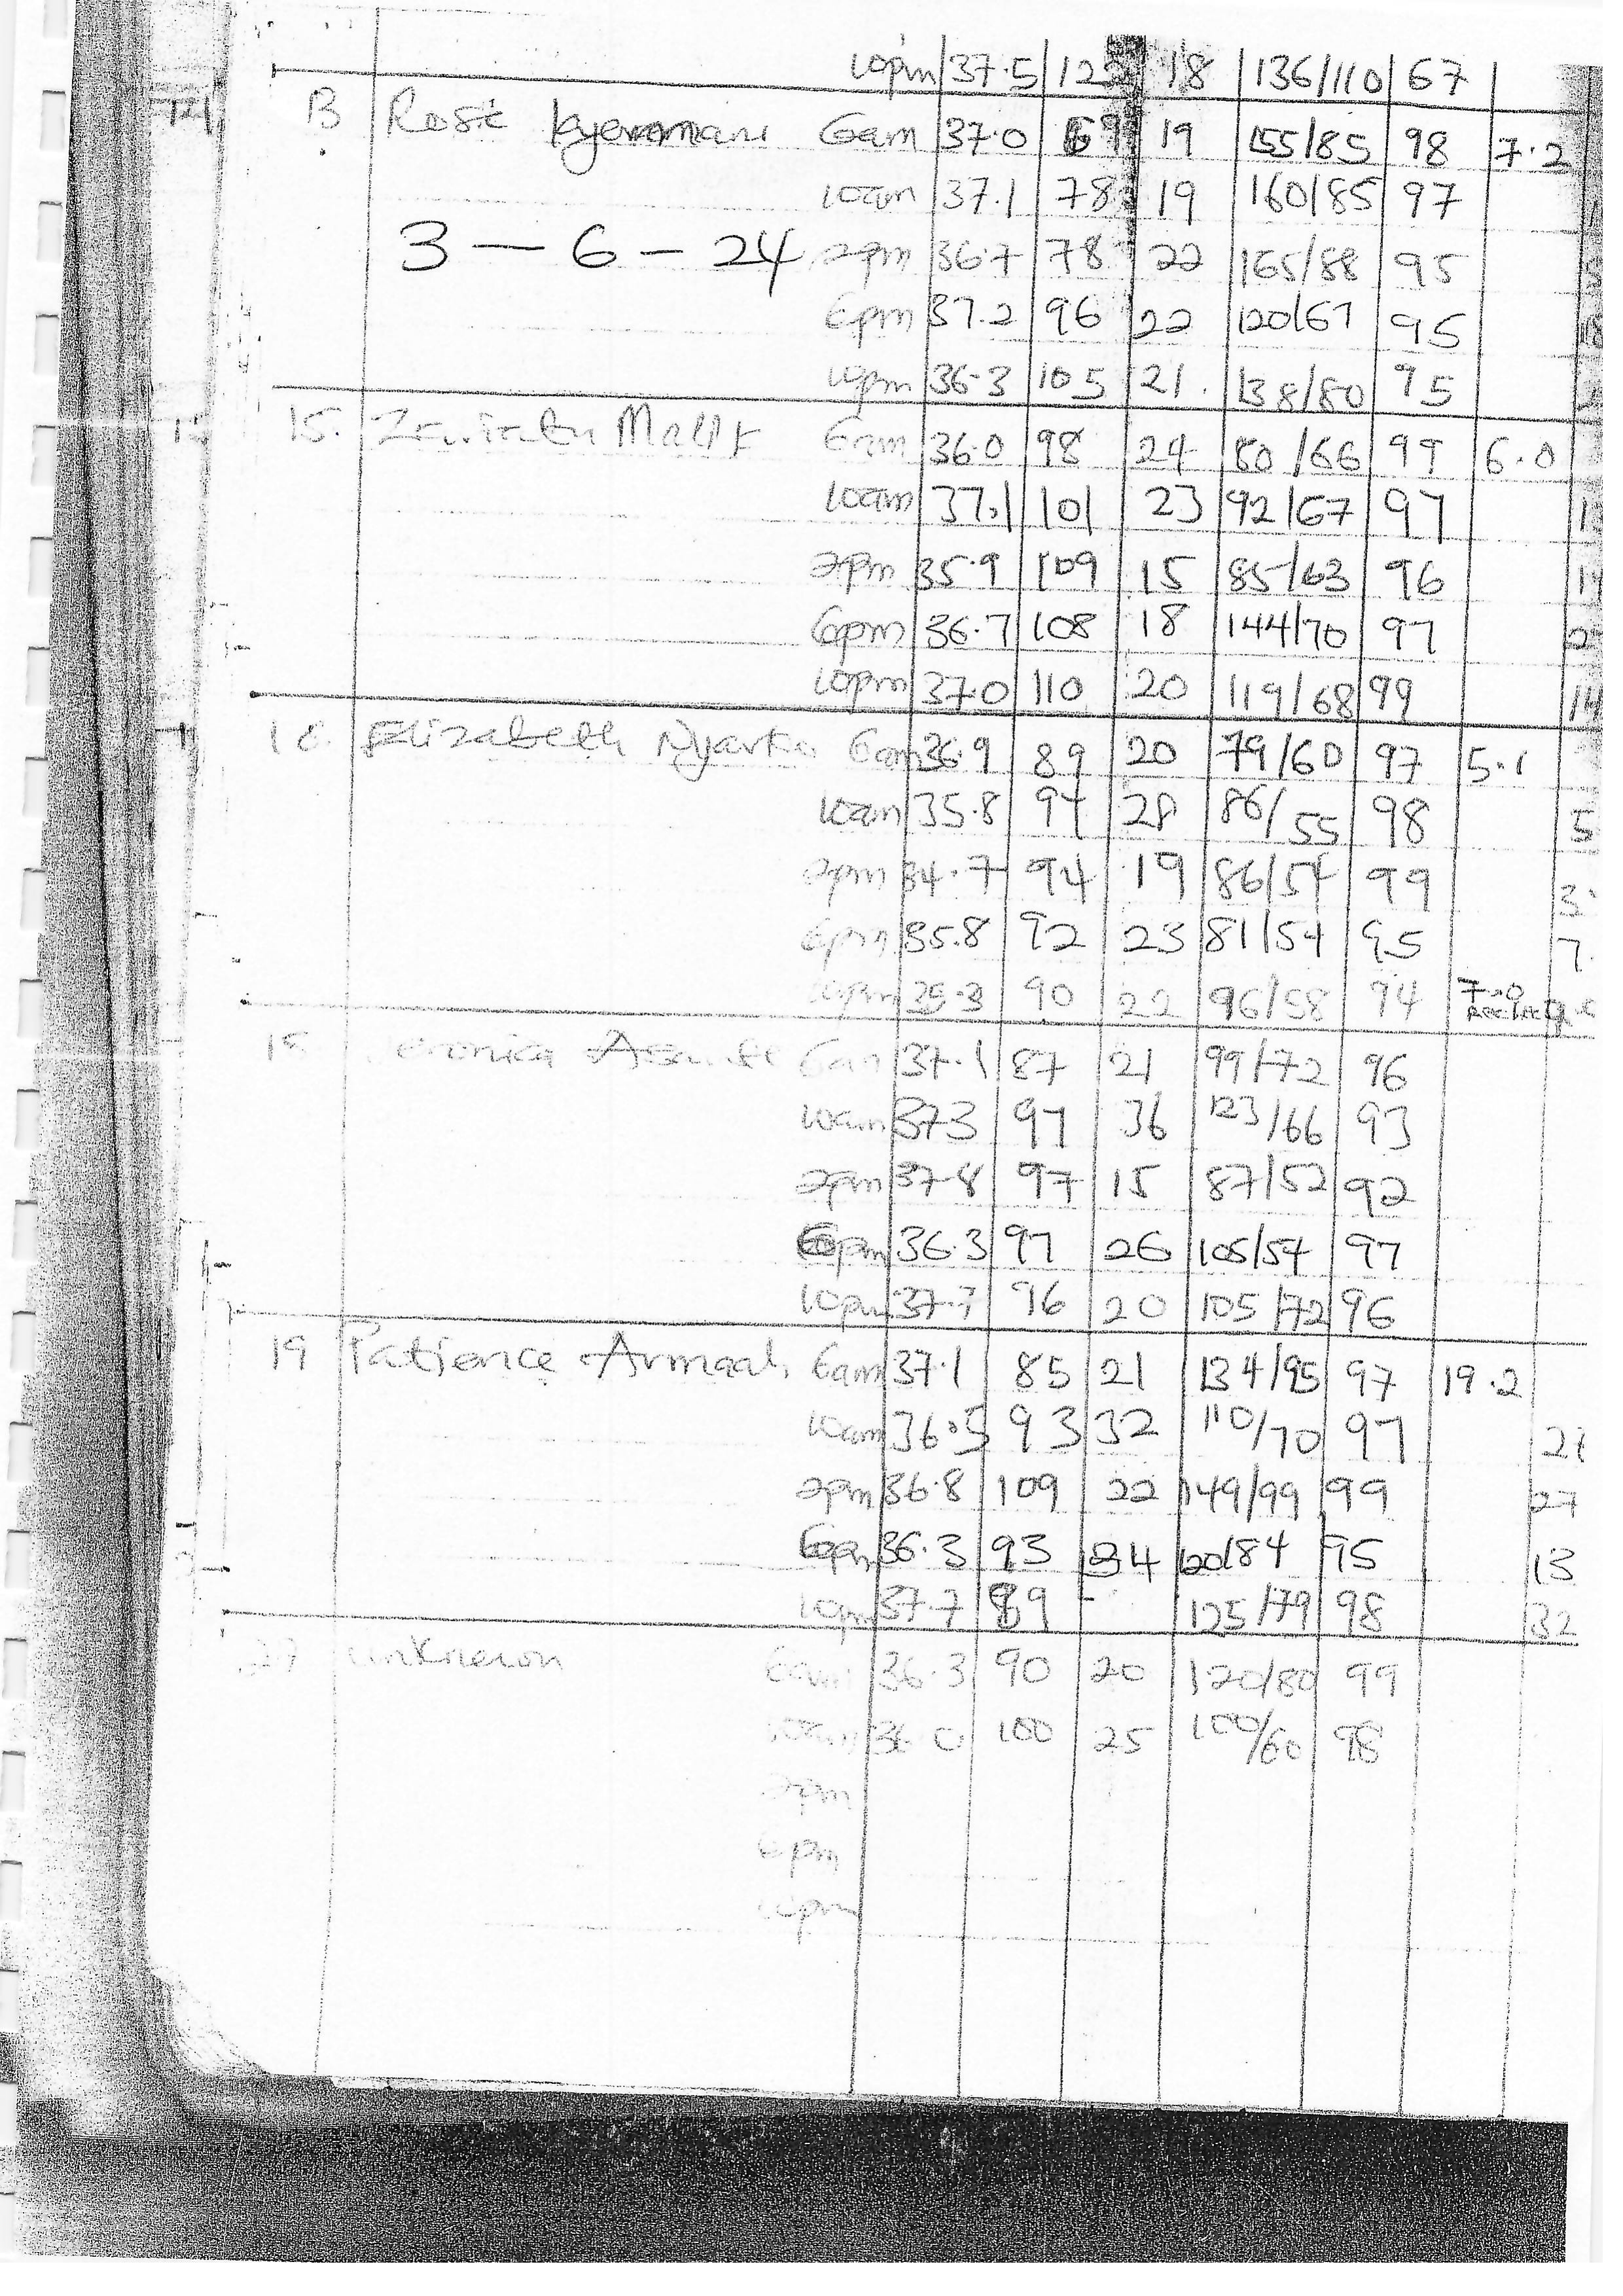 10pm 37.5 18 136/110 67
B Rose 6am 37.0 19 155/85 98 7.2
10am 37.1 78 19 160/85 97
3 - 6 - 24 2pm 36.7 78 22 165/88 95
6pm 37.2 96 22 120/67 95
10pm 36.3 105 21 138/80 95
15. 6am 36.0 98 24 80/66 99 6.0
10am 37.1 101 23 92/67 97
2pm 35.9 109 15 85/63 96
6pm 36.7 108 18 144/70 97
10pm 37.0 110 20 119/68 99 14
Elizabeth Nyarko 6am 36.9 89 20 79/60 97 5.1
10am 35.8 97 28 86/55 98 5
2pm 34.7 94 19 86/54 99 3
6pm 35.8 92 23 81/54 95 7
10pm 90 22 96/58 94 7.0
6am 37.1 87 21 99/72 96
10am 37.3 97 36 123/66 93
2pm 37.8 97 15 87/52 92
6pm 36.3 97 26 105/54 97
10pm 96 20 105/72 96
19 Patience Armaah 6am 37.1 85 21 134/95 97 19.2
10am 36.5 93 32 110/70 97
2pm 36.8 109 22 149/99 99 27
6pm 36.3 93 34 120/84 95 13
10pm 37.7 89 - 125/79 98 32
unknown 6am 36.3 90 20 120/80 99
10am 36.0 100 25 100/60 98
2pm
6pm
10pm